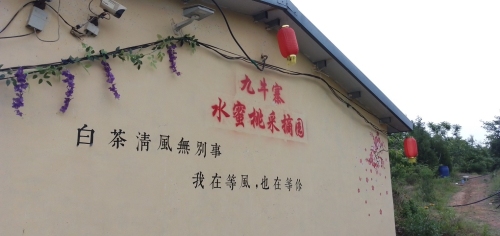 九斗寨
水蜜桃采摘园
白茶清風無别事
我在等風，也在等你